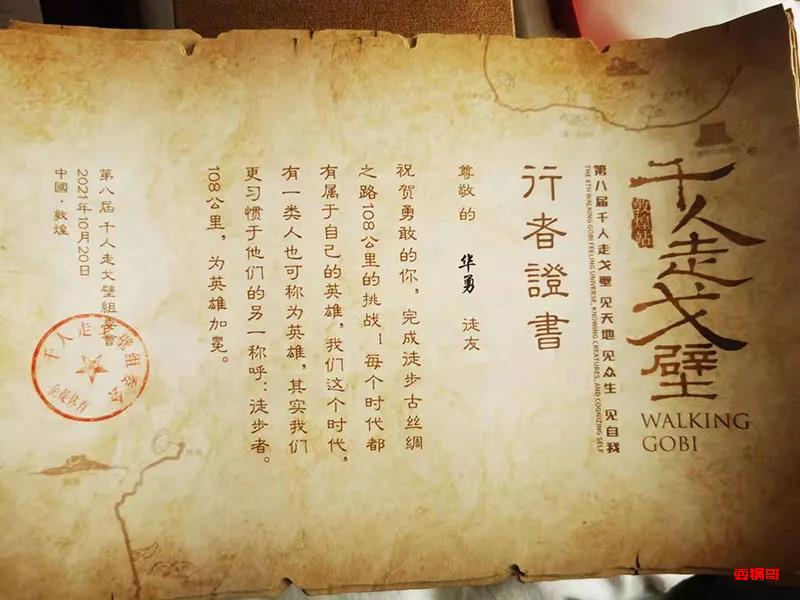 千人走戈壁
敦煌站
WALKING
GOBI
第八届 千人走戈壁 见天地 见众生 见自我
THE 8TH WALKING GOBI FEELING UNIVERSE, KNOWING CREATURES, AND COGNIZING SELF
行者證書
尊敬的 华勇 徒友
祝贺勇敢的你，完成徒步古丝绸
之路108公里的挑战！每个时代都
有属于自己的英雄，我们这个时代，
有一类人也可称为英雄，其实我们
更习惯于他们的另一称呼：徒步者。
108公里，为英雄加冕。
第八届 千人走戈壁组委會
2021年10月20日
中國·敦煌
耍锅哥